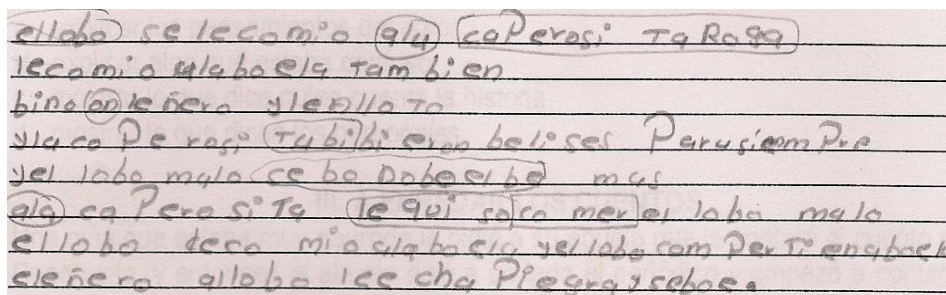 ellobo se lecomio ala caPerosi TaRoga
lecomio alaboela Tam bien
bino on leñero
ylaca Pe rosi Tabibi eron belises Parasiem Pre
yel lobo malo ce bo mas
ala ca Pero si Ta le qui so co mer el lobo malo
el lobo deco mio alaboela yel lobo com
eleñero allobo lee cha Piegra yseboe.